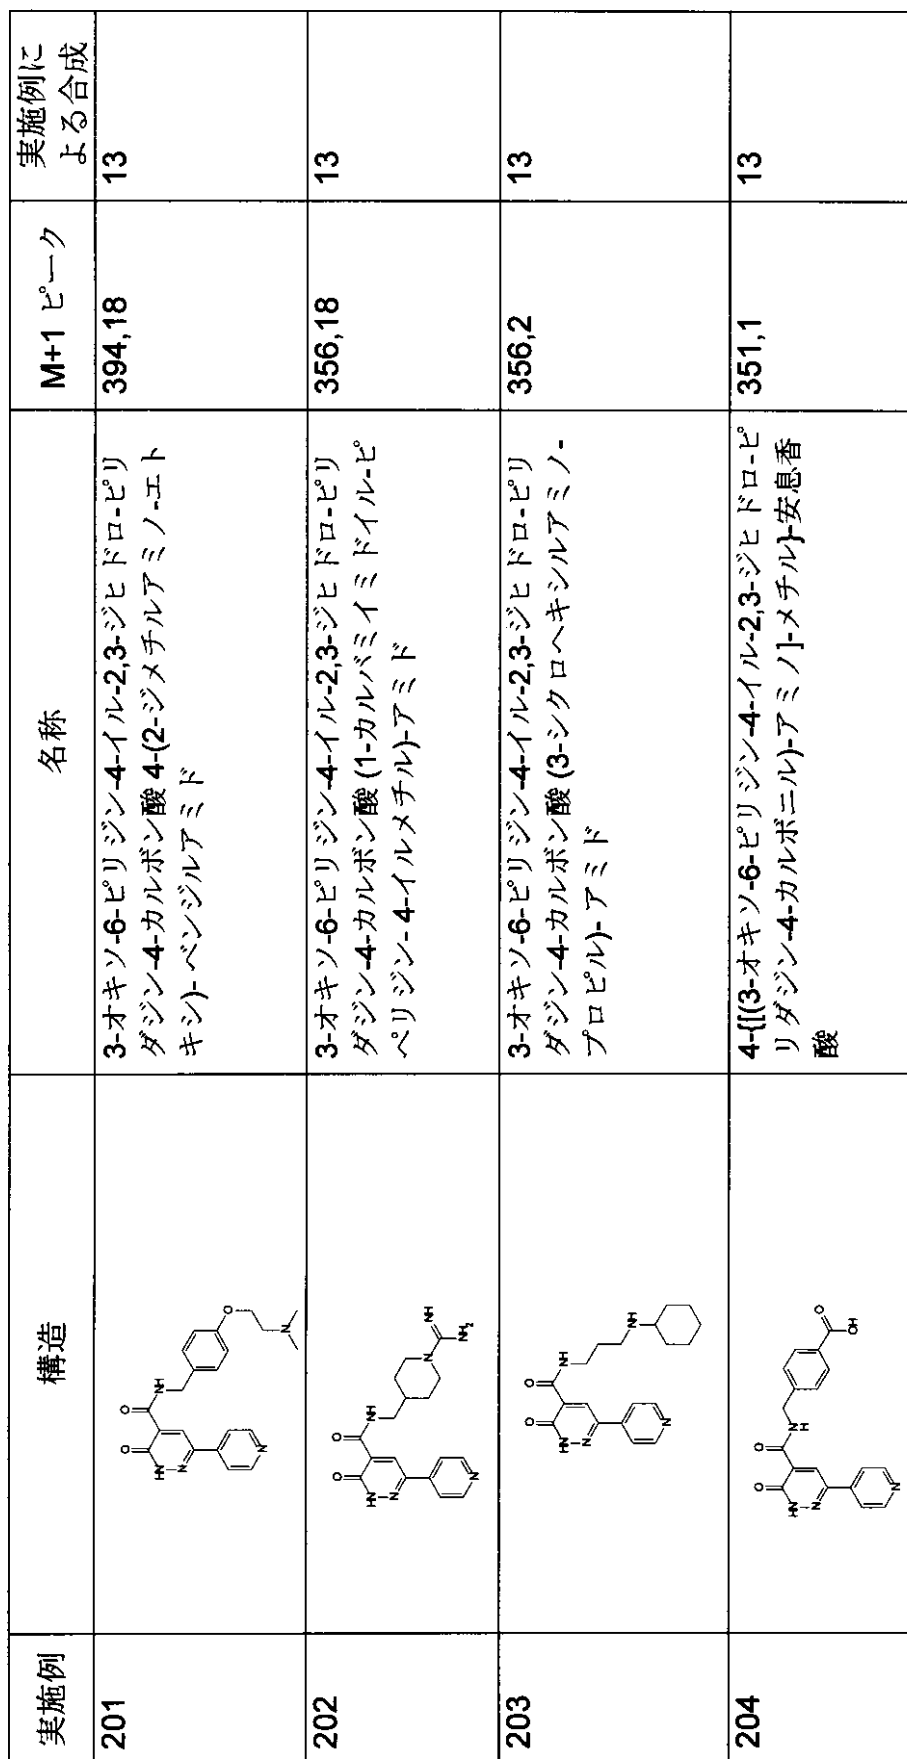 実施例
構造
名称
M+1 ピーク
実施例に
よる合成
201
3-オキソ-6-ピリジン-4-イル-2,3-ジヒドロ-ピリ
ダジン-4-カルボン酸 4-(2-ジメチルアミノ-エト
キシ)- ベンジルアミド
394,18
13
202
3-オキソ-6-ピリジン-4-イル-2,3-ジヒドロ-ピリ
ダジン-4-カルボン酸 (1-カルバミイミドイル-ピ
ペリジン- 4-イルメチル)-アミド
356,18
13
203
3-オキソ-6-ピリジン-4-イル-2,3-ジヒドロ-ピリ
ダジン-4-カルボン酸 (3-シクロヘキシルアミノ-
プロピル)- アミド
356,2
13
204
4-{[(3-オキソ-6-ピリジン-4-イル-2,3-ジヒドロ-ピ
リダジン-4-カルボニル)-アミノ]-メチル}-安息香
酸
351,1
13